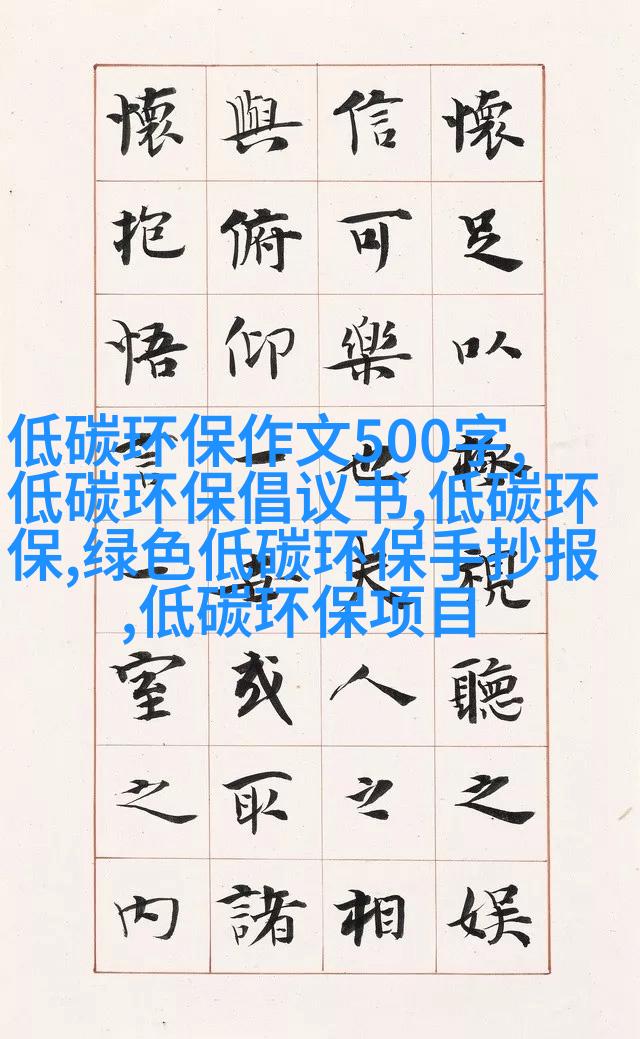 懷足以極視聽之娛
信可樂也夫人之相
與俯仰一世或取諸
懷抱悟言一室之內
低碳环保作文500字,
低碳环保倡议书,低碳环
保,绿色低碳环保手抄报
,低碳环保项目